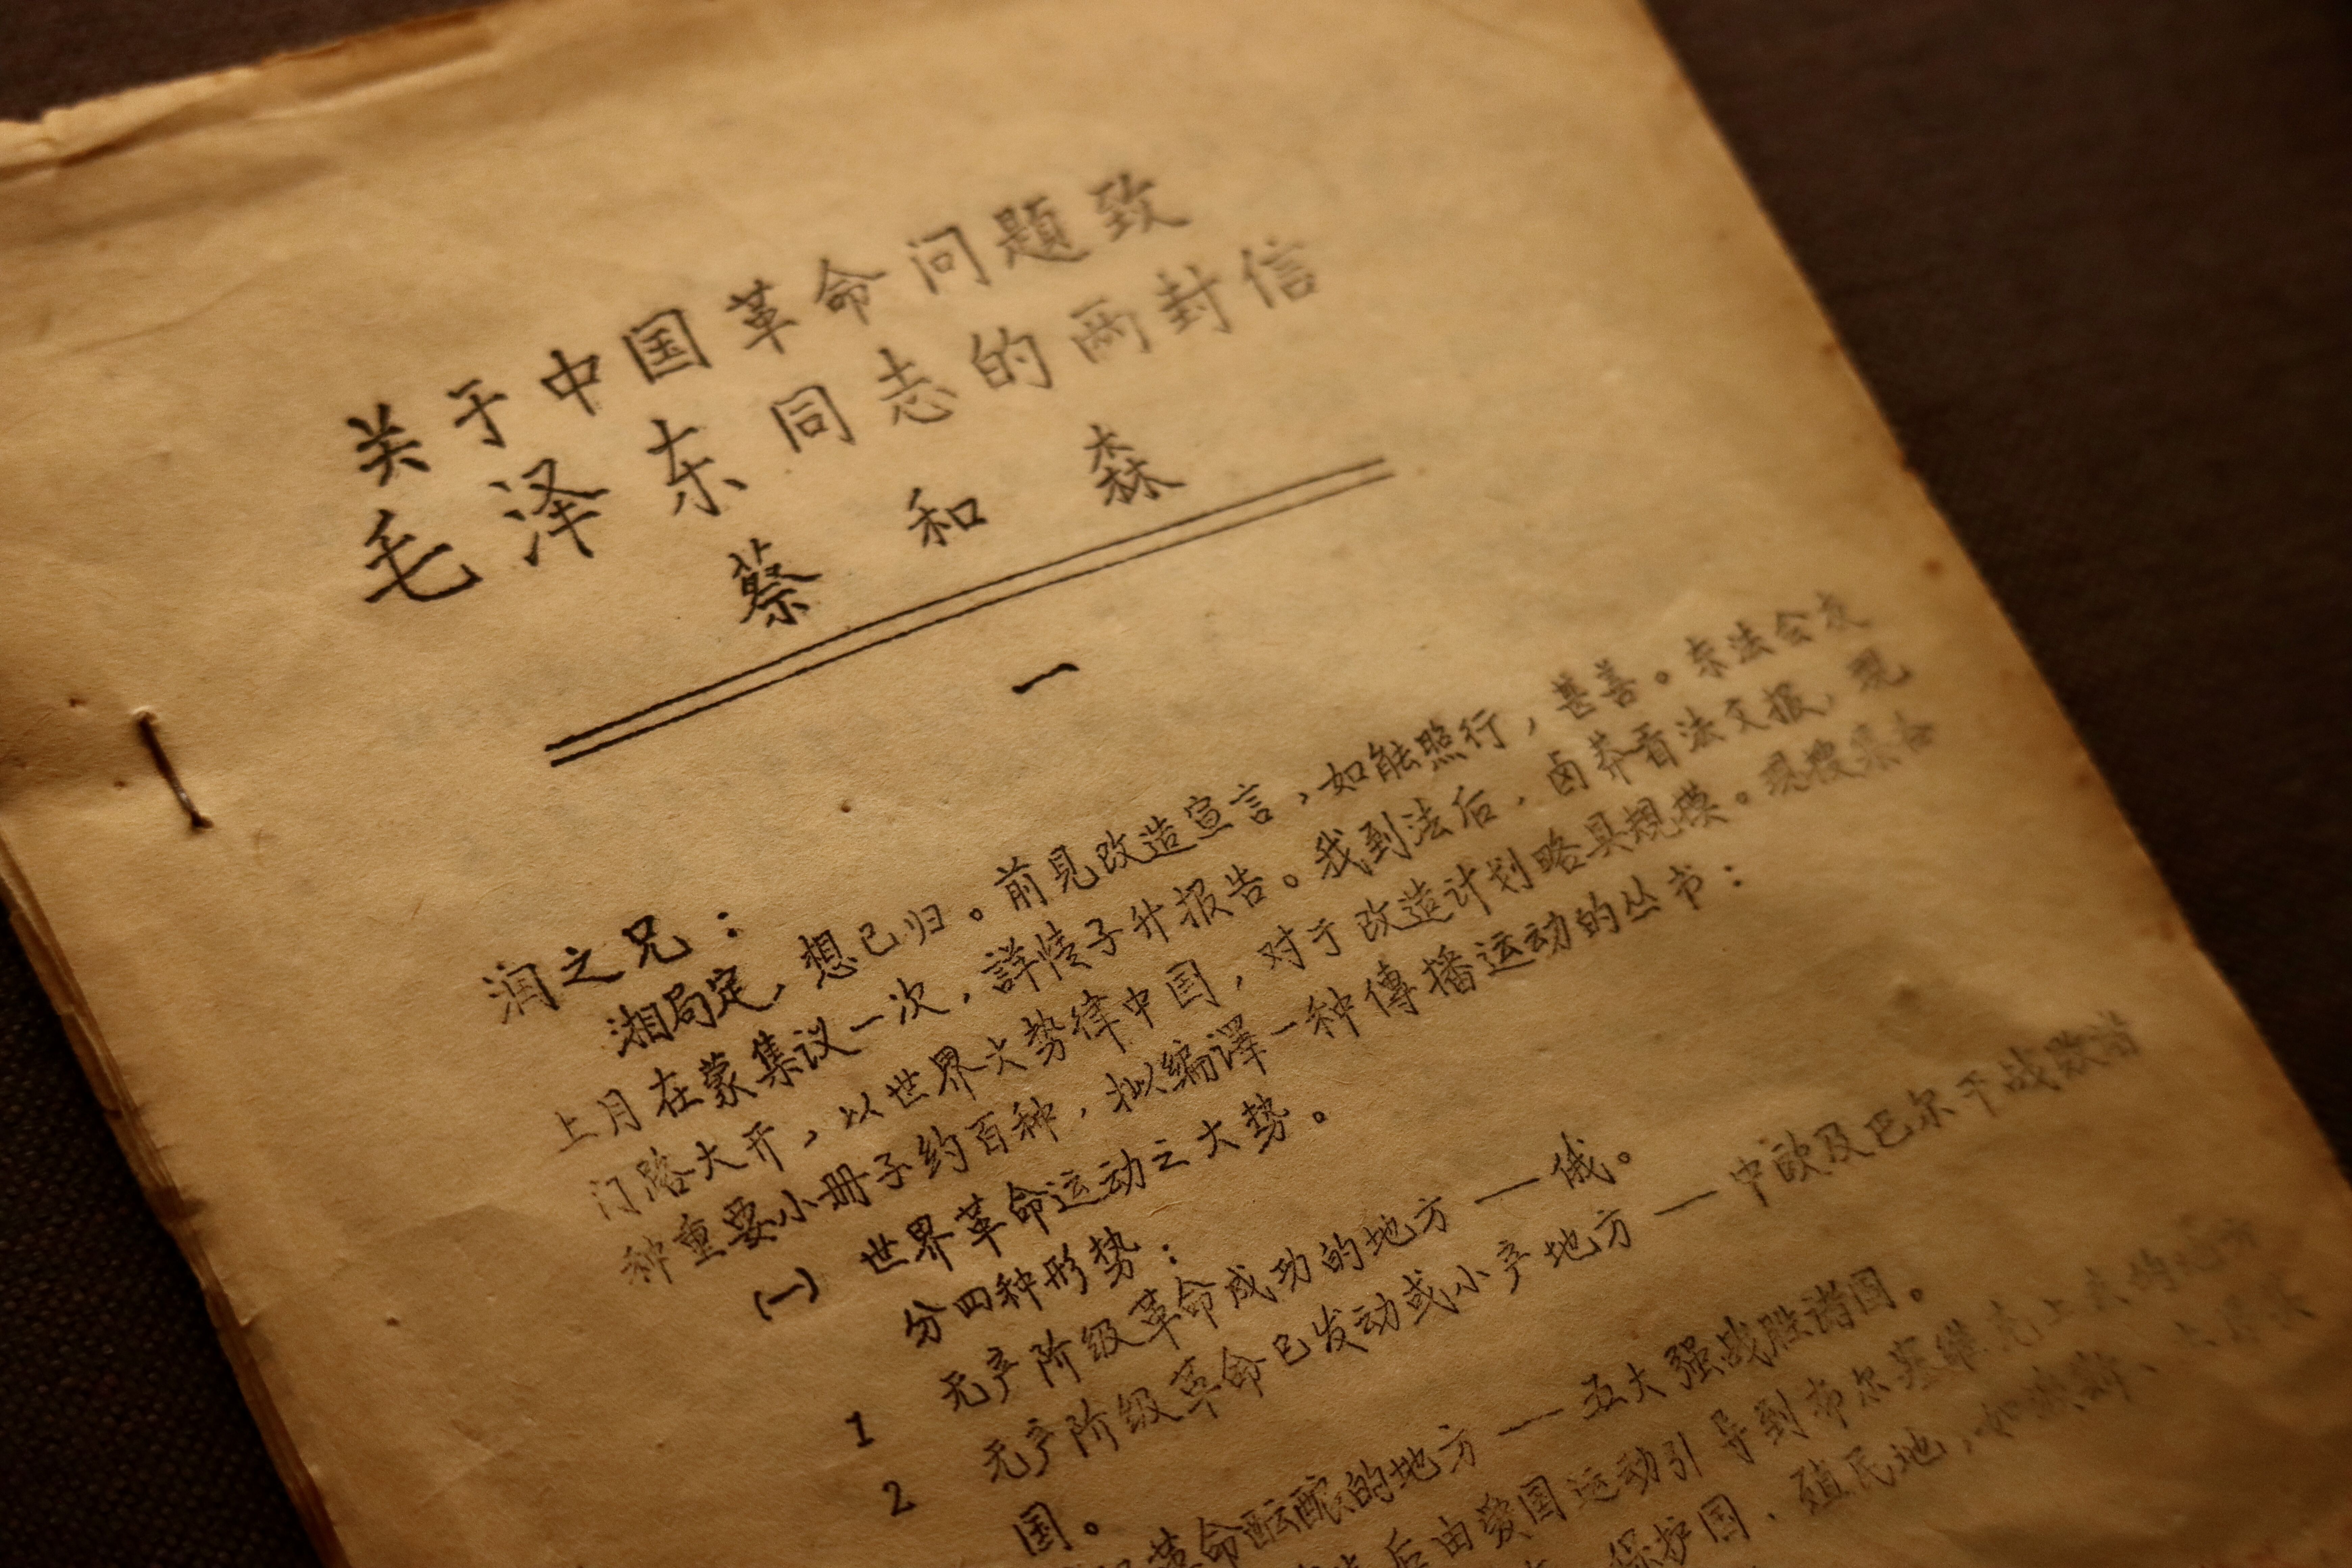 关于中国革命问題致
毛泽东同志的两封信
蔡和森
一
润之兄：
湘局定，想已归。前见改造宣言，如能照行，甚善。东法会友
上月在蒙集议一次，詳情子升报告。我到法后，卤莽看法文报，现
门路大开，以世界大势律中国，对于改造计划略具規模。现搜集各
种重要小册子约百种，拟编譯一种傳播运动的丛书：
(一) 世界革命运动之大势。
分四种形势：
1 无产阶级革命成功的地方——俄。
2 无产阶级革命已发动或小产地方——中欧及巴尔干战败诸
国。
革命酝酿的地方——五大强战胜諸国。
后由爱国运动引导到布尔塞维克上去的地方
保护国、殖民地，如波斯、土耳其